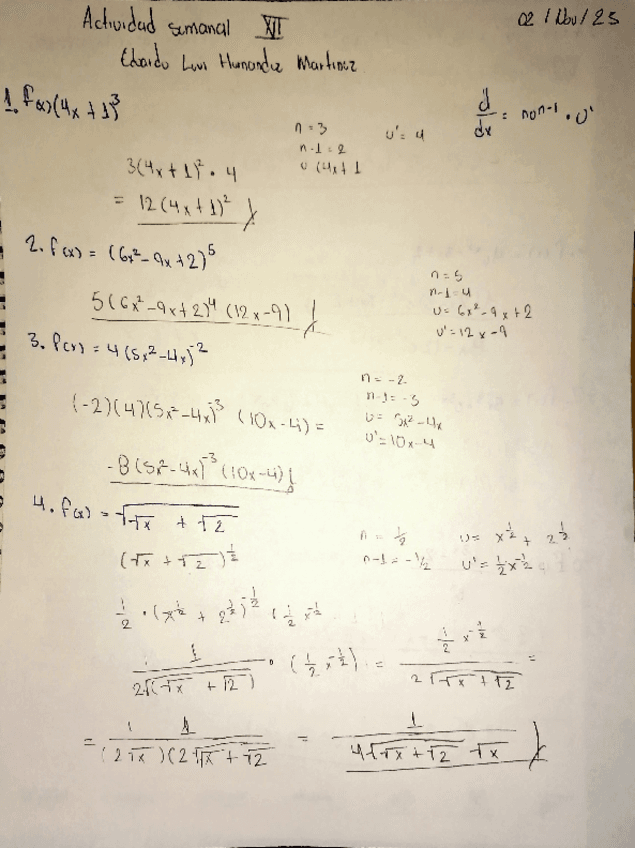 Actividad semanal XII
02 / Nov / 23
Eduardo Luis Hernandez Martinez
1. f(x)(4x + 1)³
d/dx = nuⁿ⁻¹ · u'
n = 3
u' = 4
n-1 = 2
u (4x+1
3(4x + 1)² · 4
= 12(4x + 1)²
2. f(x) = (6x² - 9x + 2)⁵
n = 5
n-1 = 4
5(6x² - 9x + 2)⁴ (12x - 9)
u = 6x² - 9x + 2
u' = 12x - 9
3. f(x) = 4(5x² - 4x)⁻²
n = -2
n-1 = -3
(-2)(4)(5x² - 4x)⁻³ (10x - 4) =
u = 5x² - 4x
u' = 10x - 4
-8(5x² - 4x)⁻³ (10x - 4)
4. f(x) = √(√x + √2)
n = ½
u = x^½ + 2^½
(√x + √2)^½
n-1 = -½
u' = ½x^-½
½ · (x^½ + 2^½)^-½ (½ x^-½
1/(2√(√x + √2)) · (½ x^-½) = (½ x^-½)/(2√(√x + √2)) =
= 1/((2√x)(2√(√x + √2)) = 1/(4√(√x + √2) √x)